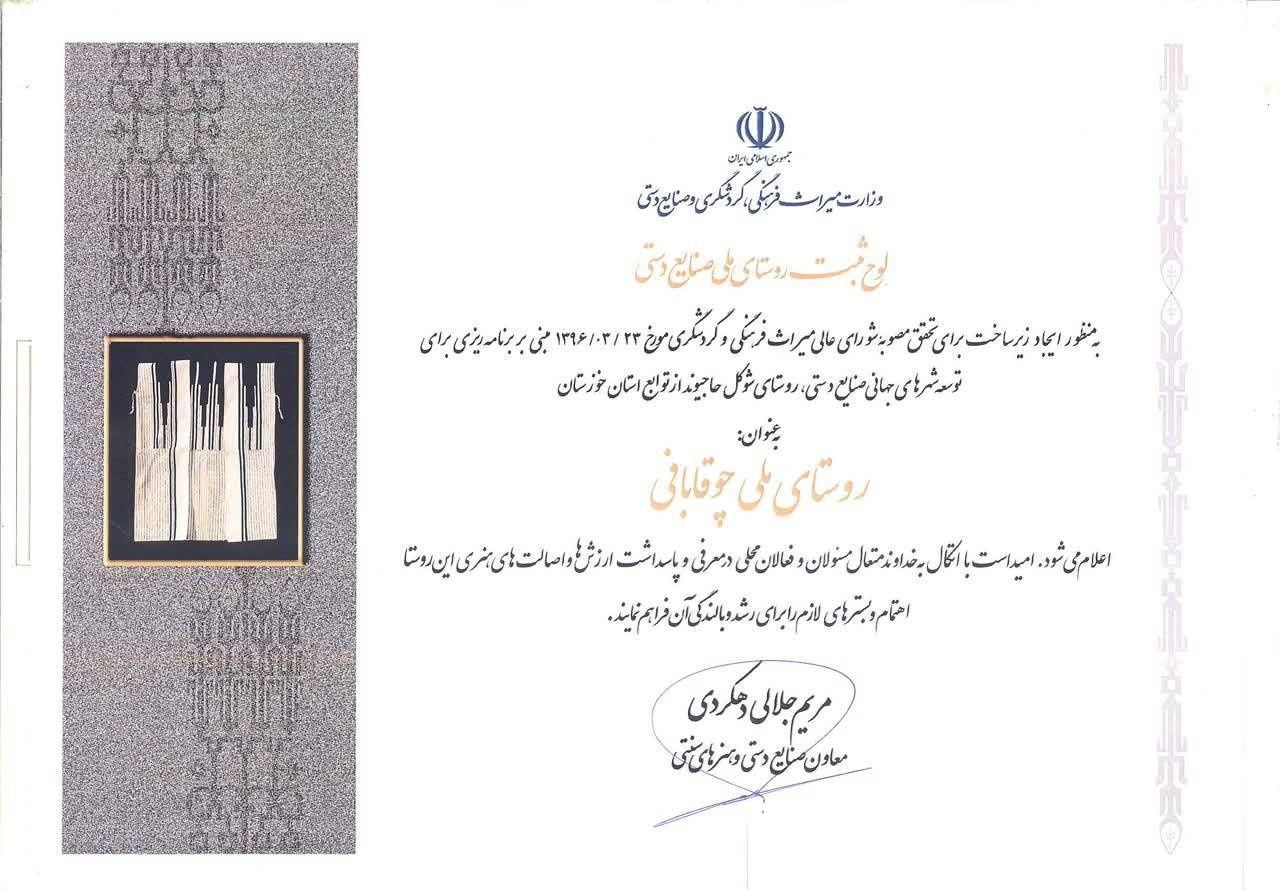 جمهوری اسلامی ایران
وزارت میراث فرهنگی، گردشگری و صنایع دستی
لوح ثبت روستای ملی صنایع دستی
به منظور ایجاد زیرساخت برای تحقق مصوبه شورای عالی میراث فرهنگی و گردشگری مورخ ۱۳۹۶/۰۳/۲۳ مبنی بر برنامه ریزی برای
توسعه شهرهای جهانی صنایع دستی، روستای شوکل حاجیوند از توابع استان خوزستان
به عنوان:
روستای ملی چوقابافی
اعلام می شود. امید است با اتکال به خداوند متعال مسئولان و فعالان محلی در معرفی و پاسداشت ارزش ها و اصالت های هنری این روستا
اهتمام و بسترهای لازم را برای رشد و بالندگی آن فراهم نمایند.
مریم جلالی دهکردی
معاون صنایع دستی و هنرهای سنتی